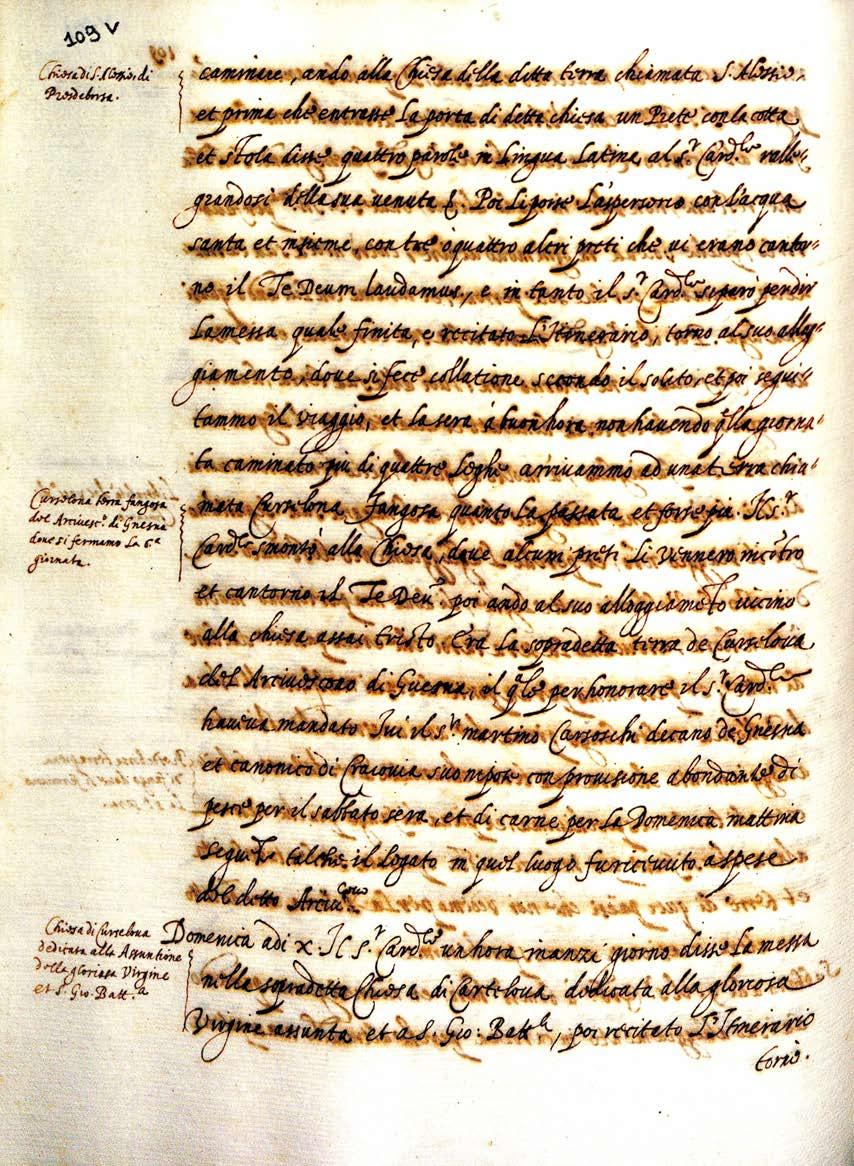 109 v
Chiesa di S. Alessio, di
Presdeborsa.
caminare, andò alla Chiesa della detta terra chiamata S. Alessio,
et prima che entrasse la porta di detta chiesa un Prete con la cotta
et stola disse quattro parole in Lingua Latina al s.r Card.le ralle-
grandosi della sua venuta Poi li porse l'aspersorio con l'acqua
santa et insieme, con tre ò quattro altri preti che vi erano cantor-
no il Te Deum laudamus, e in tanto il s.r Card.le si parò per dir
la messa quale finita, e recitato l'Itinerario, torno al suo allog-
giamento, dove si fece collatione secondo il solito, et poi segui-
tammo il viaggio, et la sera à buon hora non havendo q.lla giorna-
ta caminato più di quattro leghe arrivammo ad una terra chia-
mata Curselona fangosa quanto la passata et forse più. Il s.r
Card.le smontò alla Chiesa, dove alcuni preti li vennero incōtro
et cantorno il Te Deū poi andò al suo alloggiamēto vicino
alla chiesa assai tristo. Era la sopradetta terra de Curselova
del Arcivescovo di Guesna, il q.le per honorare il s.r Card.le
haveva mandato Ivi il s.r martino Carsoschi decano de Gnesna
et canonico di Cracovia suo nipote con provisione abondante di
pesce per il sabbato sera, et di carne per la Domenica mattina
seguēte talche il Legato in quel luogo fu ricevuto à spese
del detto Arciv.covo
Curselona terra fangosa
del Arcivesc.o di Gnesna
dove si fermamo la 6.a
giornata.
Chiesa di Curselova
dedicata alla Assuntione
della gloriosa Virgine
et S. Gio. Batt.a
Domenica adi x. Il s.r Card.le un hora inanzi giorno disse la messa
nella sopradetta Chiesa di Carselova dedicata alla gloriosa
Virgine assunta et a S. Gio: Batt.a, poi recitato l'Itinerario
tornò.